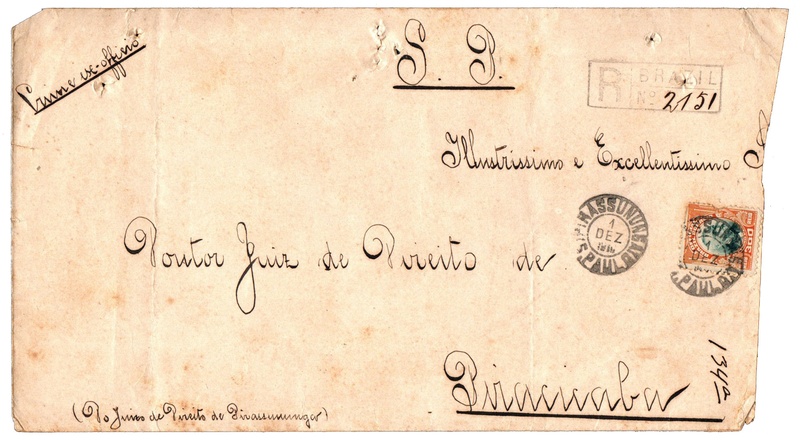 Crime ex-officio
S. P.
R BRAZIL
Nº 2151
Illustrissimo e Excellentissimo
Doutor Juiz de Direito de
Piracicaba
PIRASSUNUNGA
1
DEZ
S. PAULO
300
DEZ
PAUL
(Do Juizo de Direito de Pirassununga)